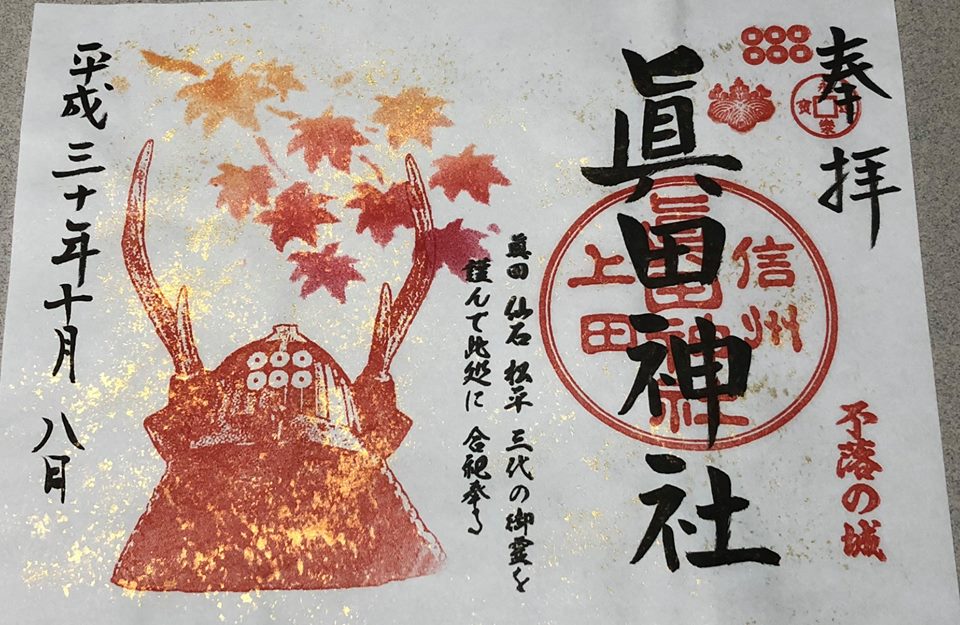 奉拝
不落の城
眞田神社
信州
上田
眞田神社
眞田 仙石 松平 三代の御霊を
謹んで此処に 合祀奉る
平成三十年十月八日